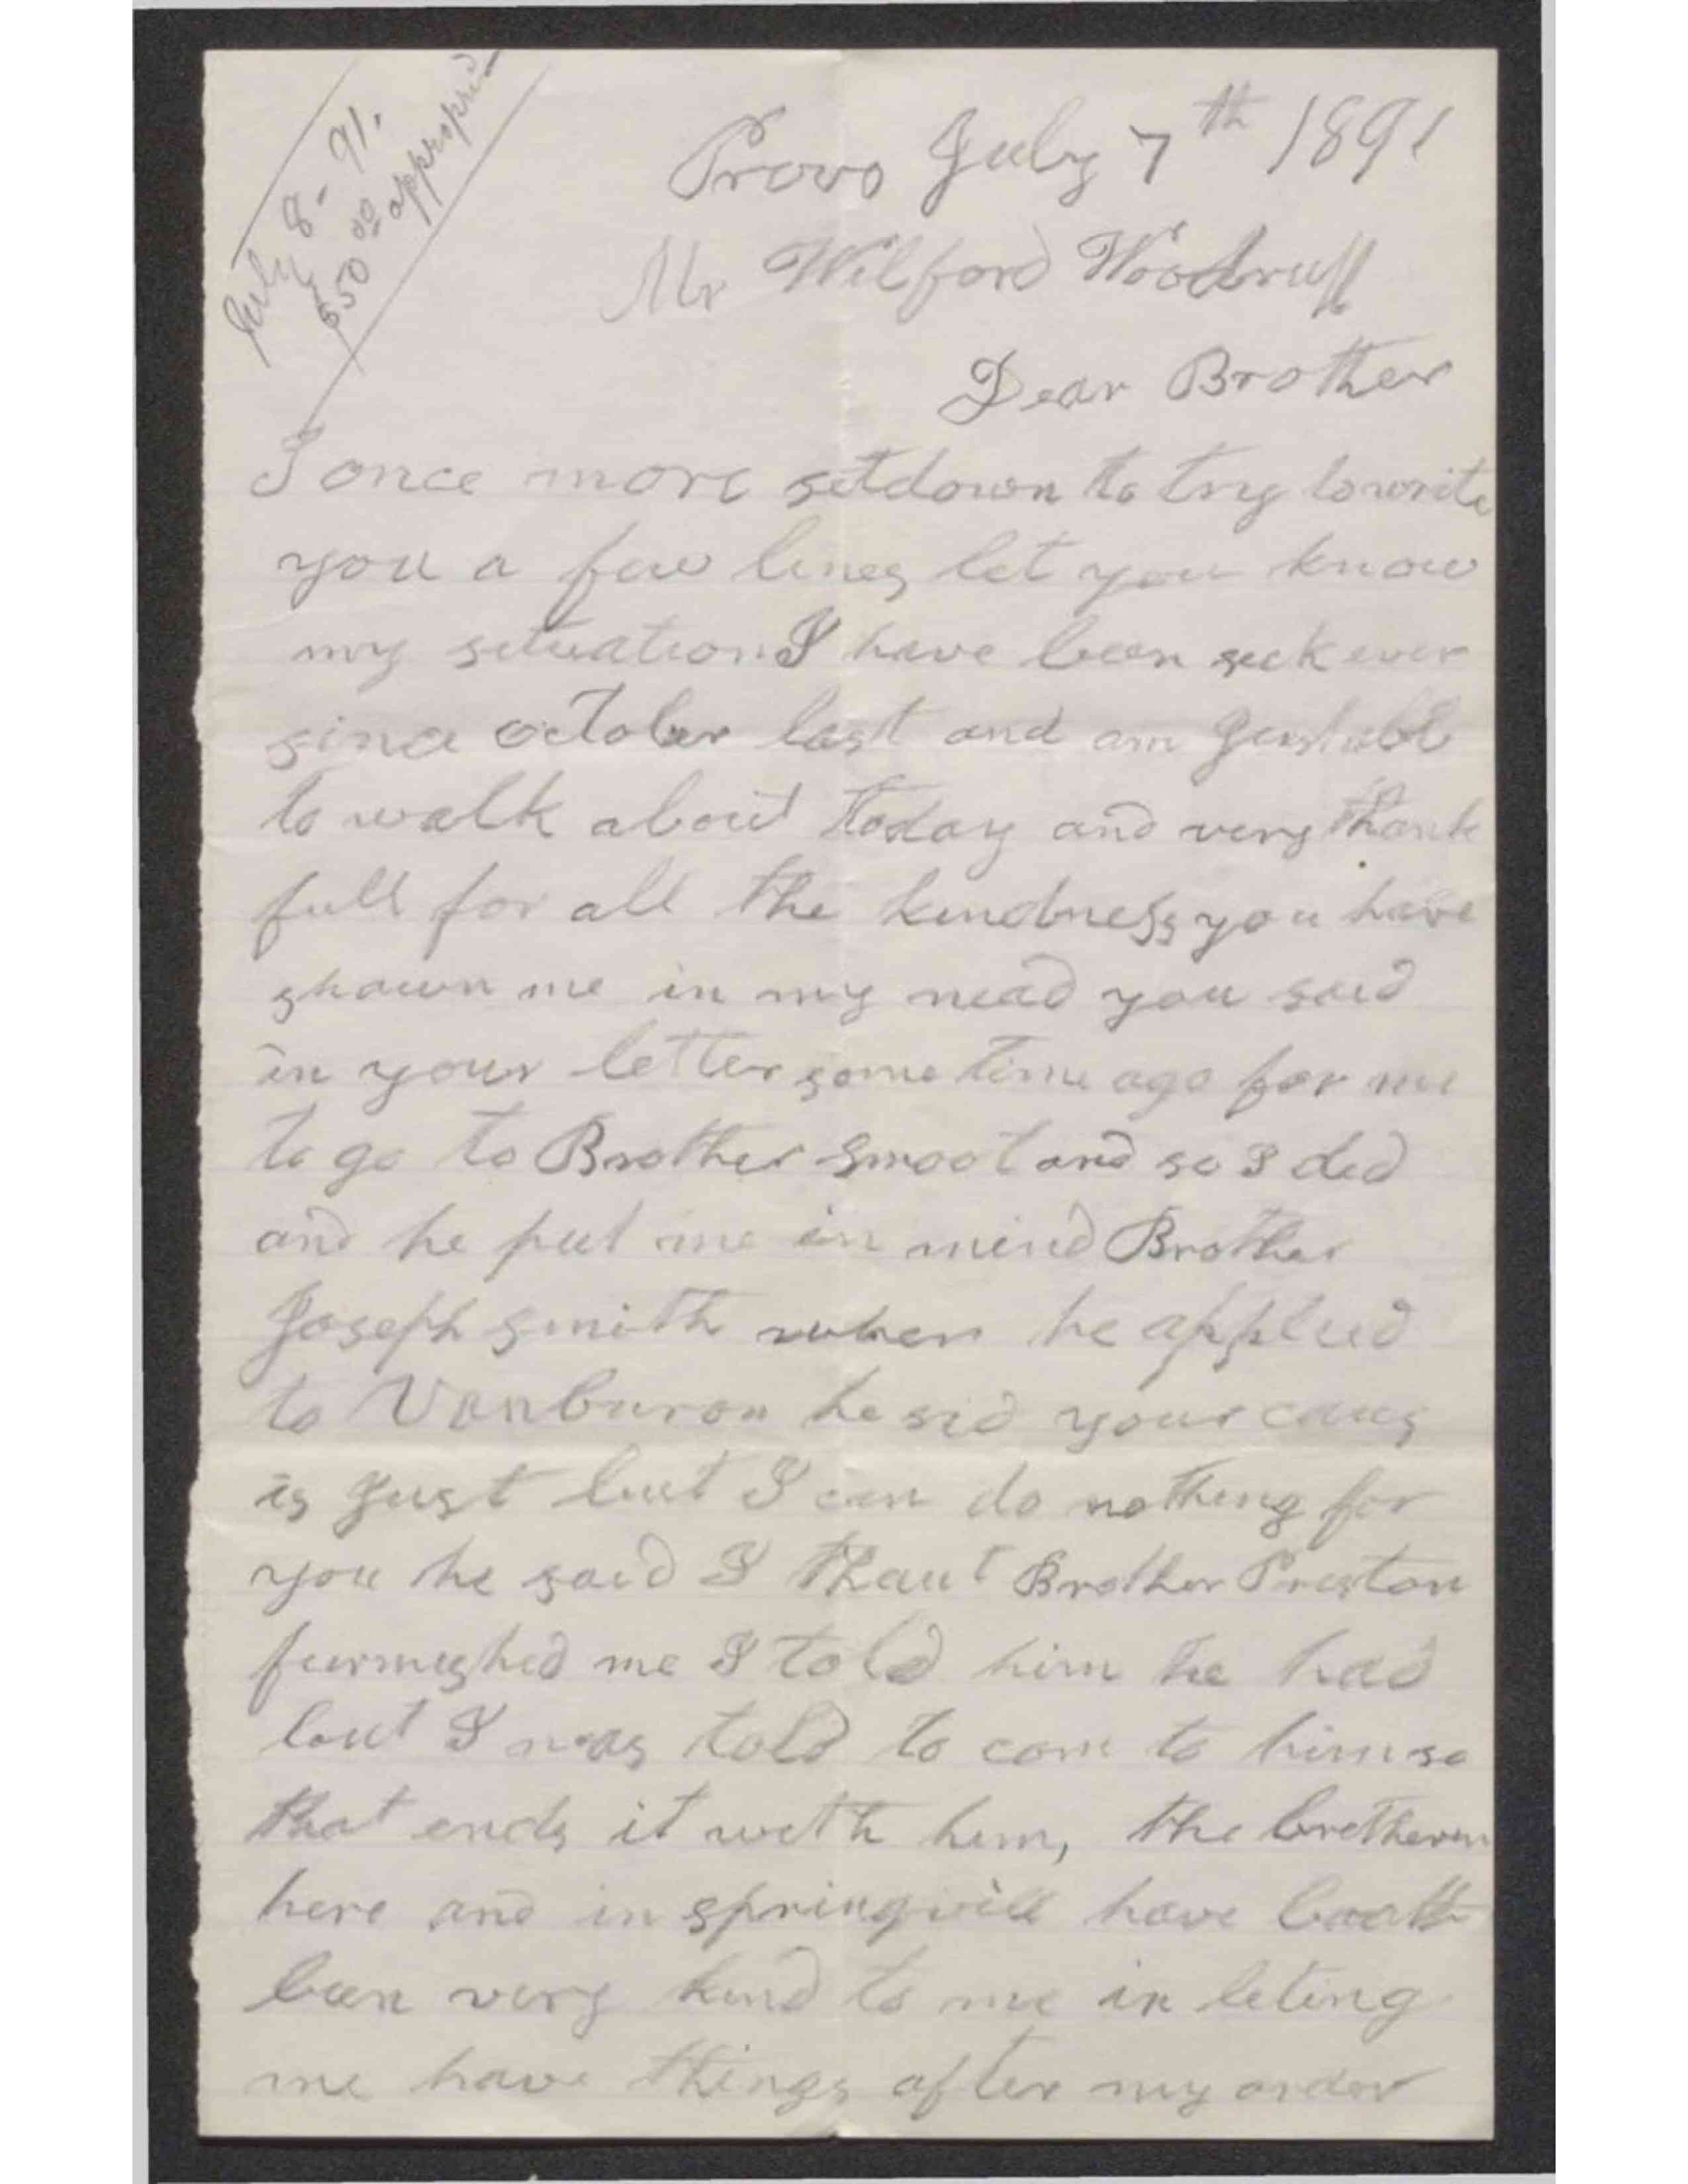 July 8 - 91.
$50 00 appropri
Provo July 7th 1891
Mr Wilford Woodruff
Dear Brother
I once more setdown to try to write
you a few lines let you know
my situation I have been sick ever
since october last and am Just able
to walk about today and very thank
full for all the kindness you have
shown me in my nead you said
in your letter some time ago for me
to go to Brother Smoot and so I did
and he put me in mind Brother
Joseph smith when he applied
to Vanburon he sid your caus
is Just but I can do nothing for
you he said I thaut Brother Preston
furnished me I told him he had
but I was told to com to him so
that ends it with him, the bretheren
here and in springvill have boath
been very kind to me in leting
me have things after my order